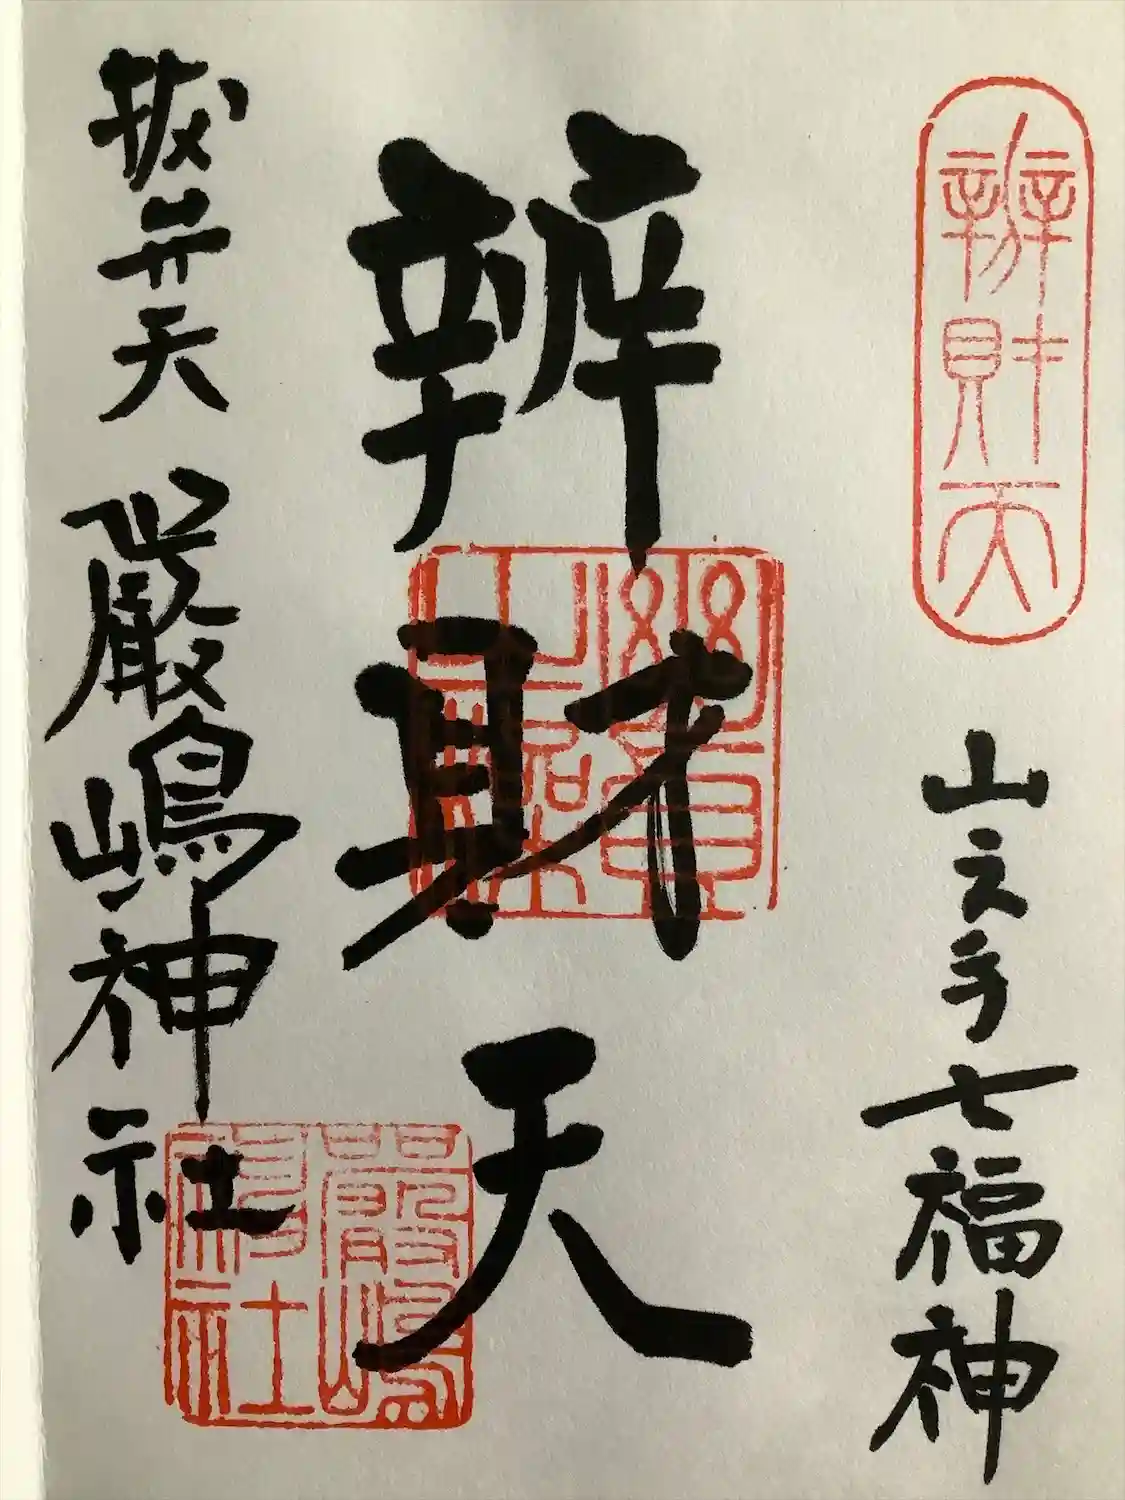 辨財天
山之手七福神
辨財天
拔弁天 嚴嶋神社
嚴嶋神社